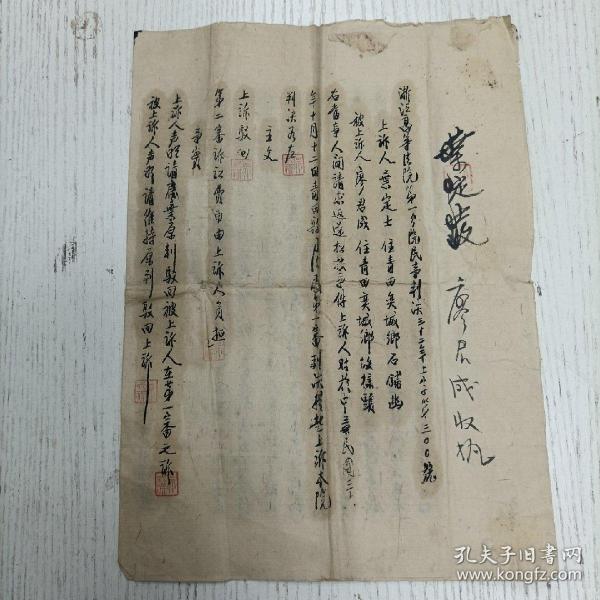 廖君成收执
浙江高等法院第一分院民事判决三十二年上字第三〇〇號
上訴人 葉定士 住青田奂城鄉石鋪幽
被上訴人 廖君成 住青田奂城鄉後樣頭
右當事人間請求返還松苾事件上訴人對於中華民國三十一
年十月十二日青田縣政府第一審判決提起上訴本院
判決如左
主文
上訴駁回
第二審訴訟費用由上訴人負担
事實
上訴人聲明請廢棄原判駁回被上訴人在第一審之訴
被上訴人聲明請維持原判駁回上訴
孔夫子旧书网
www.kongfz.com